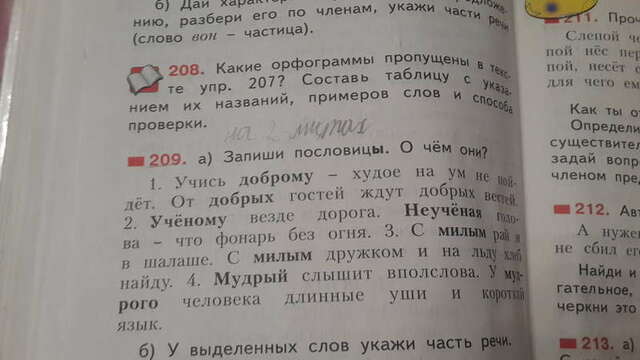 б) Дай
нию, разбери его по членам, укажи части речи
(слово вон – частица).
208. Какие орфограммы пропущены в тексте
те упр. 207? Составь таблицу с указа-
нием их названий, примеров слов и способа
проверки.
209. а) Запиши пословицы. О чём они?
1. Учись доброму – худое на ум не пой-
дёт. От добрых гостей ждут добрых вестей.
2. Учёному везде дорога. Неучёная голо-
ва – что фонарь без огня. 3. С милым рай и
в шалаше. С милым дружком и на льду хлеб
найду. 4. Мудрый слышит вполслова. У муд-
рого человека длинные уши и короткий
язык.
б) У выделенных слов укажи часть речи.
211. Про
Слепой
ной нёс
пой, несёт
для чего
Как ты от
Определи
существител
задай вопро
членом пред
212. Авто
А нужен
не сбил его
Найди и
гательное,
черкни это
213. а)